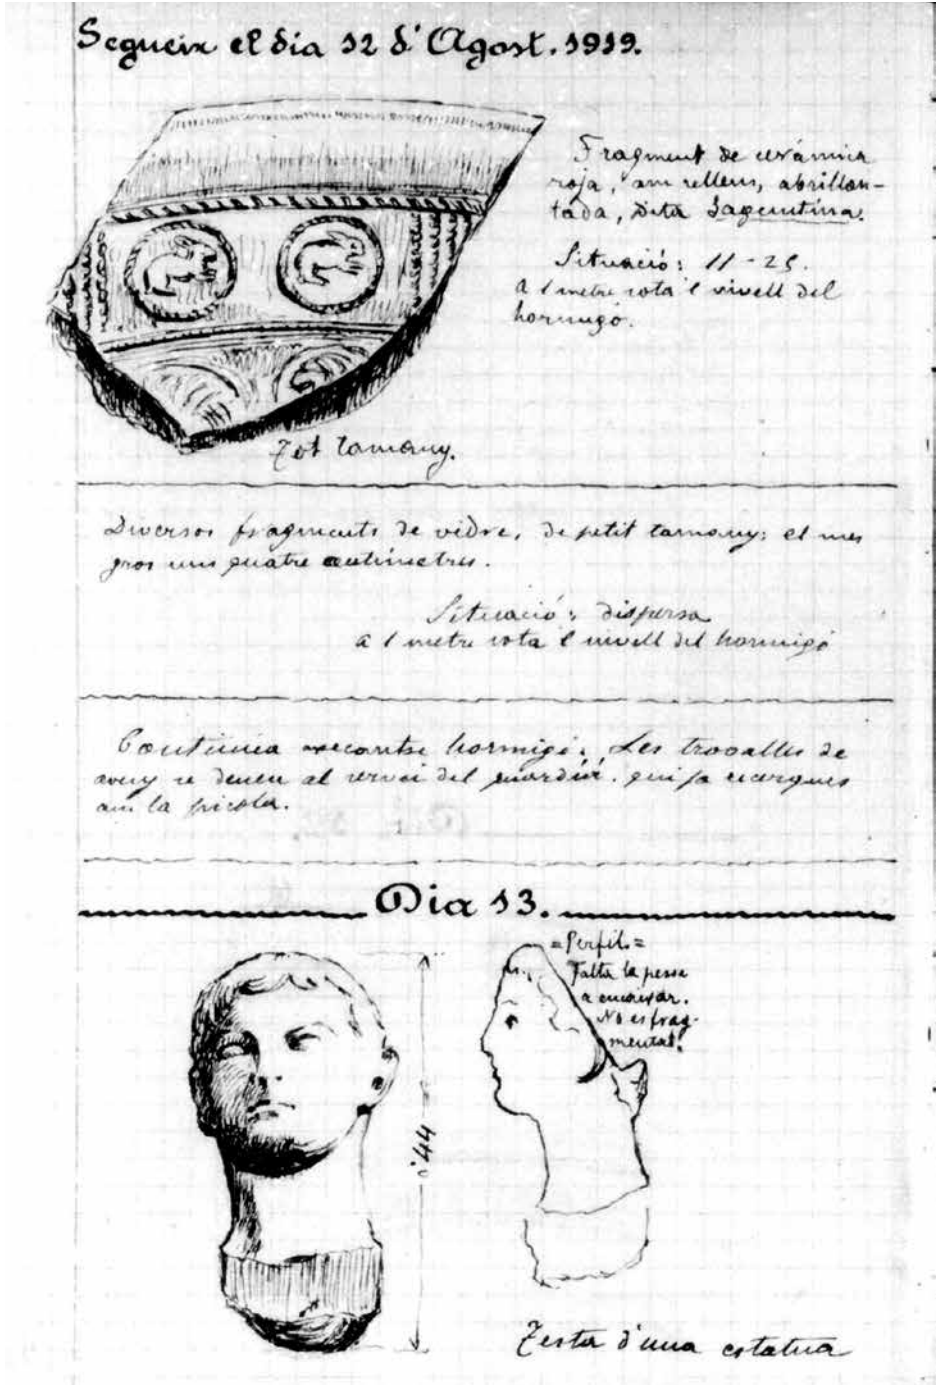 Segueix el dia 12 d'Agost. 1919.
Fragment de cerámica
roja, am relleus, abrillan-
tada, dita Saguntina.
Situació: 11-25.
a 1 metre sota l nivell del
hormigó.
Tot tamany.
Diversos fragments de vidre, de petit tamany; el mes
gros uns quatre centímetres.
Situació: dispersa
a 1 metre sota l nivell del hormigó
Continúa hormigó. Les trovalles de
avuy se deuen al servei del
am la picola.
Dia 13.
=Perfil.=
Falta la pessa
a encaixar.
No es frag-
mental.
0'44
Testa d'una estatua